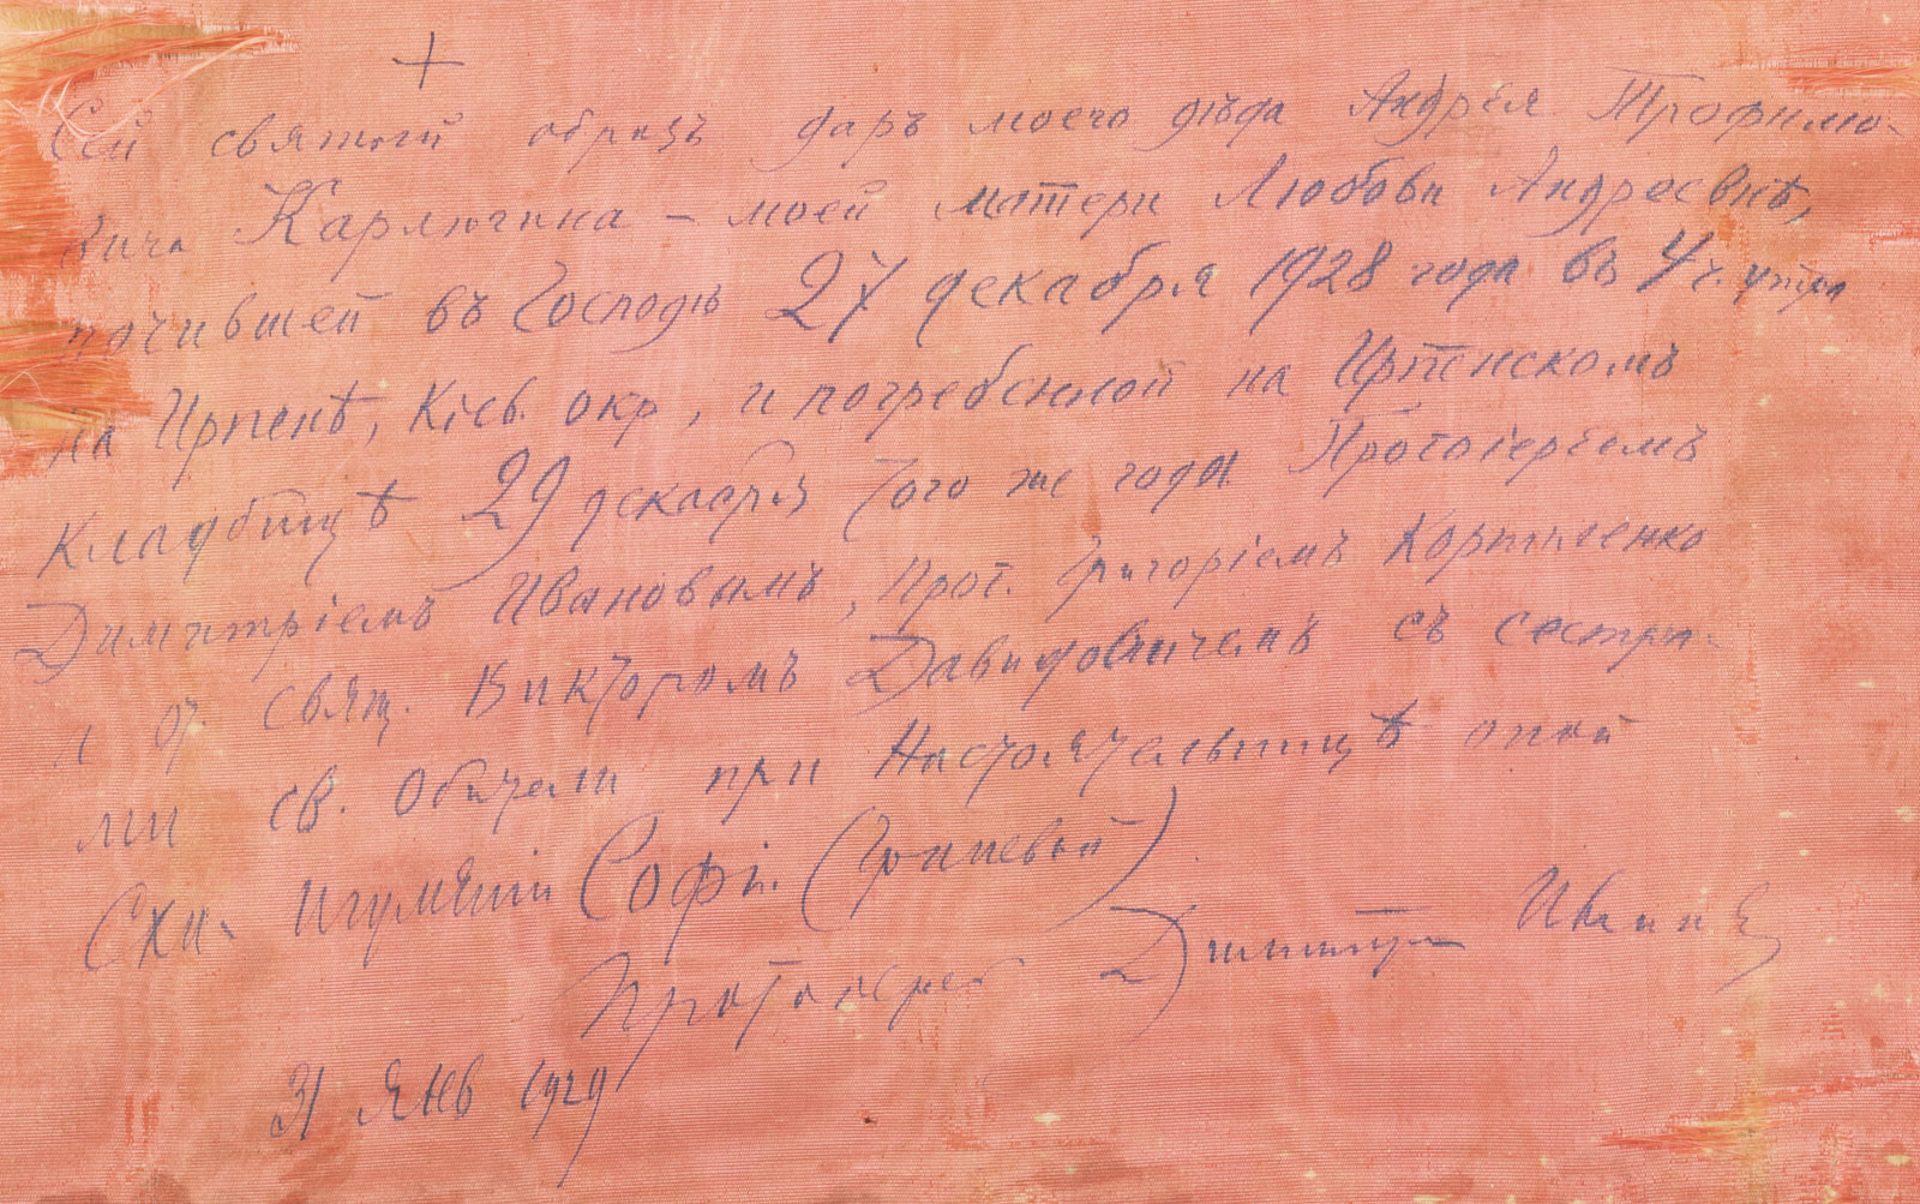 +
Сей святый образъ даръ моего дѣда Андрея Трофимо-
вича Карлючина – моей матери Любови Андреевнѣ,
почившей въ Господѣ 27 декабря 1928 года въ 4 ч. утра
на Ирпенѣ, Кіев. окр., и погребенной на Ирпенскомъ
Кладбищѣ 29 декабря того же года Протоіереемъ
Димитріемъ Ивановымъ, Прот. Григоріемъ
и свящ. Викторомъ Давидовичемъ съ сестра-
ми св. Обители при Настоятельницѣ оной
Схи- игуменіи Софіи (Гриневой)
Протоиерей Димитрий Иванов
31 Янв 1929